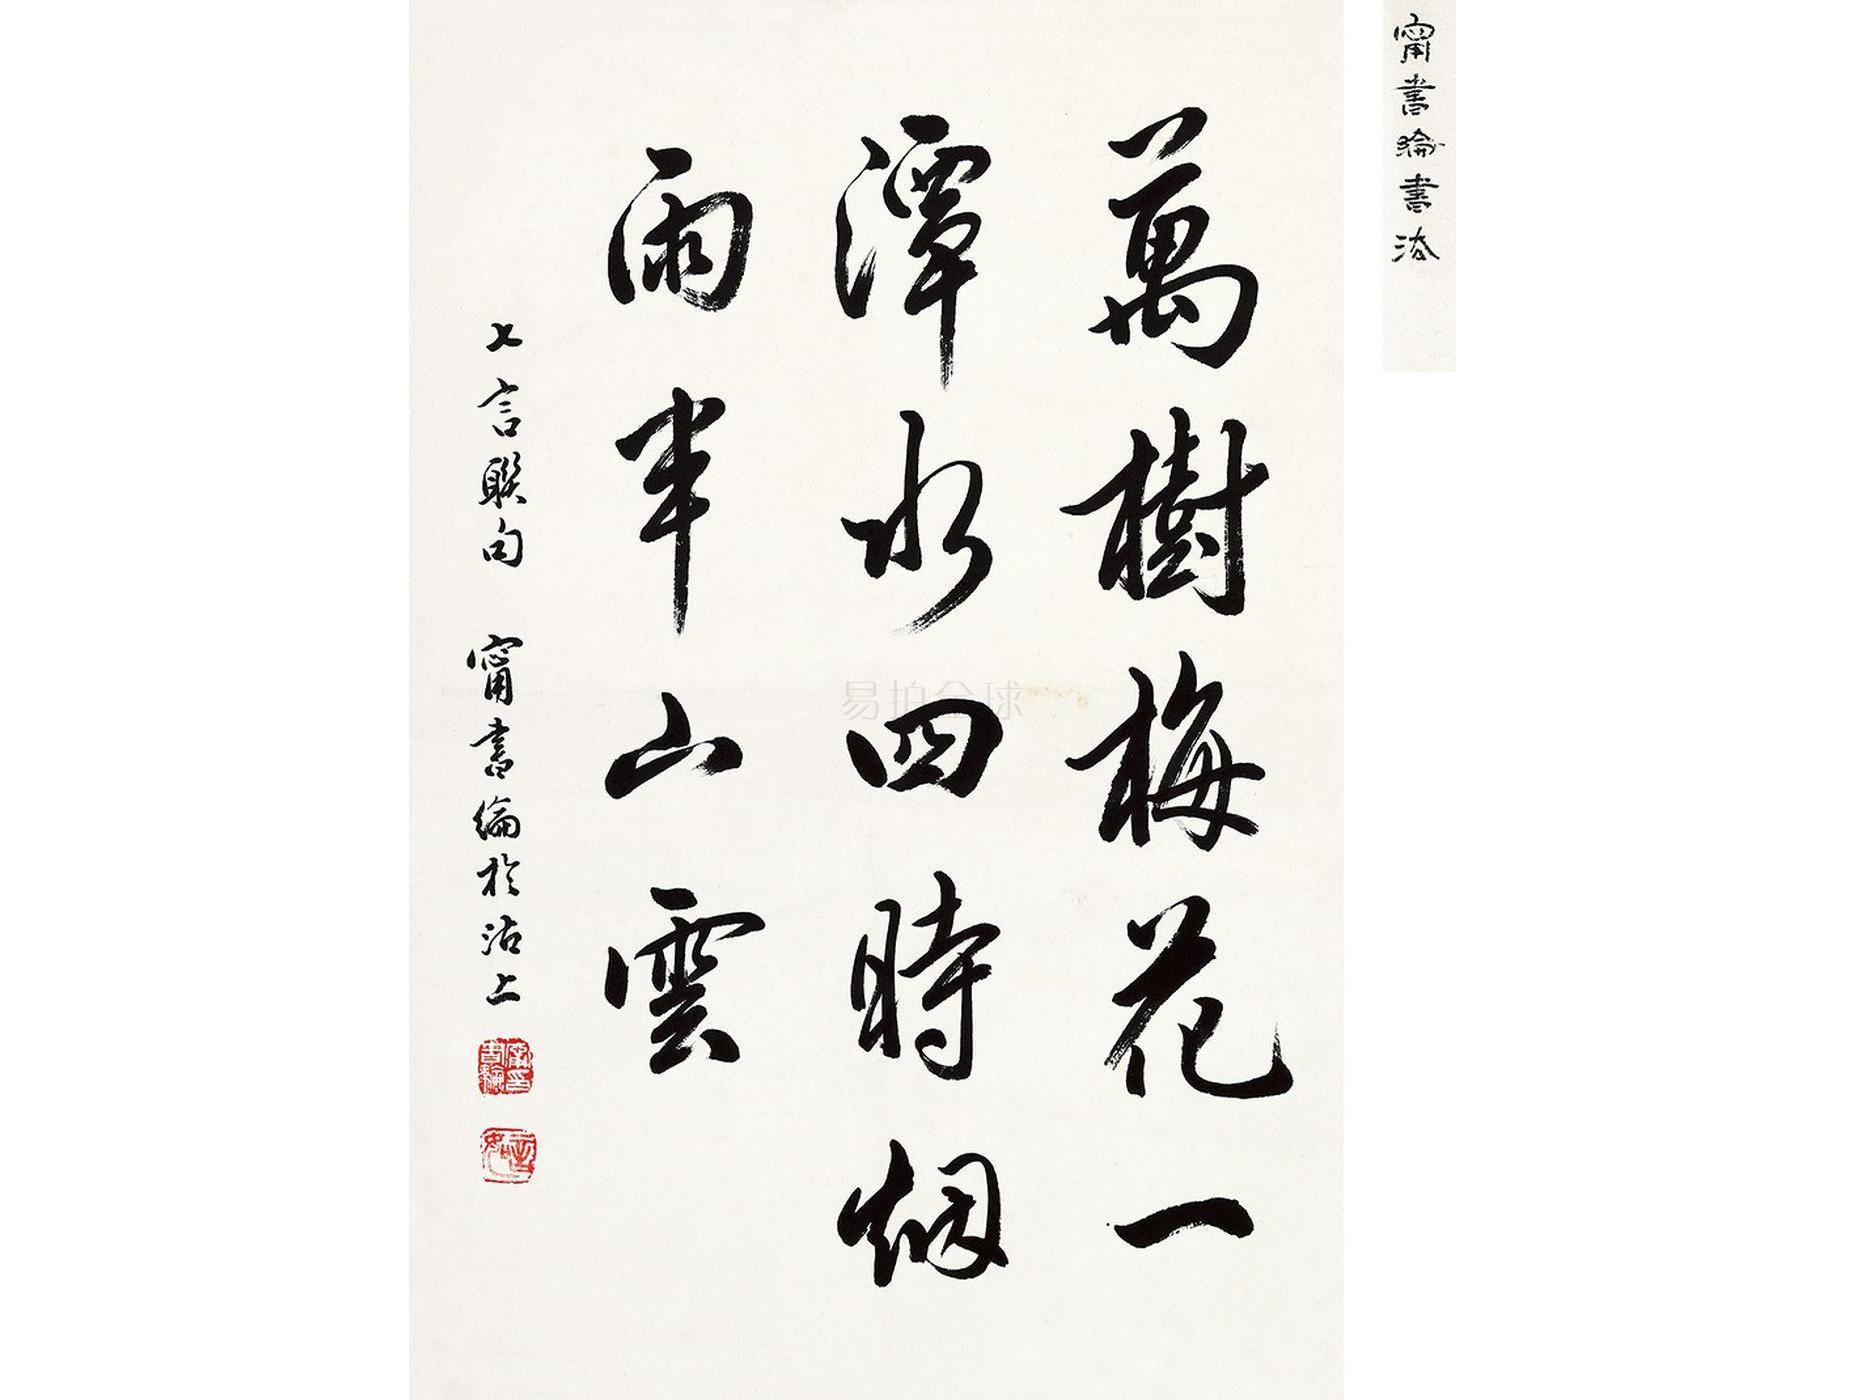 甯書綸書法
萬樹梅花一
潭水四時烟
雨半山雲
七言聯句 甯書綸於沽上
易拍全球